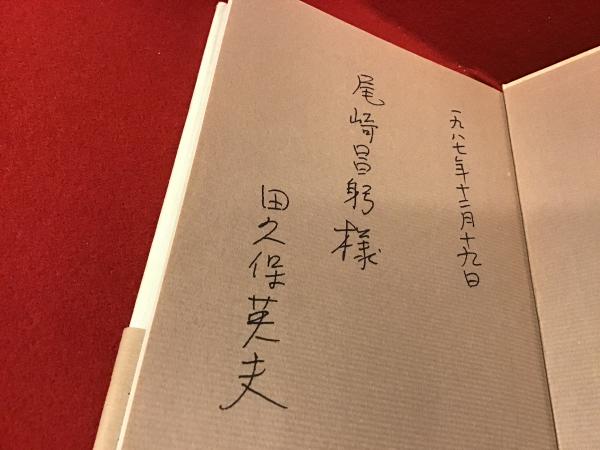 一九八七年十二月十九日
尾崎昌躬様
田久保英夫